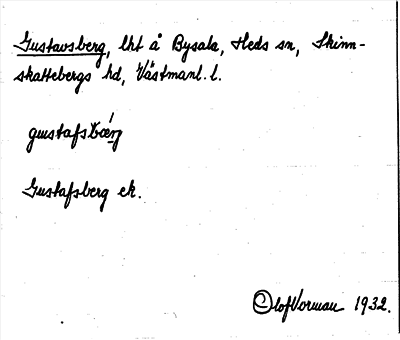 Gustavsberg, lht å Bysala, Heds sn, Skinn-
skattebergs hd, Västmanl. l.
Gustafsberg ek.
Olof Vorman 1932.